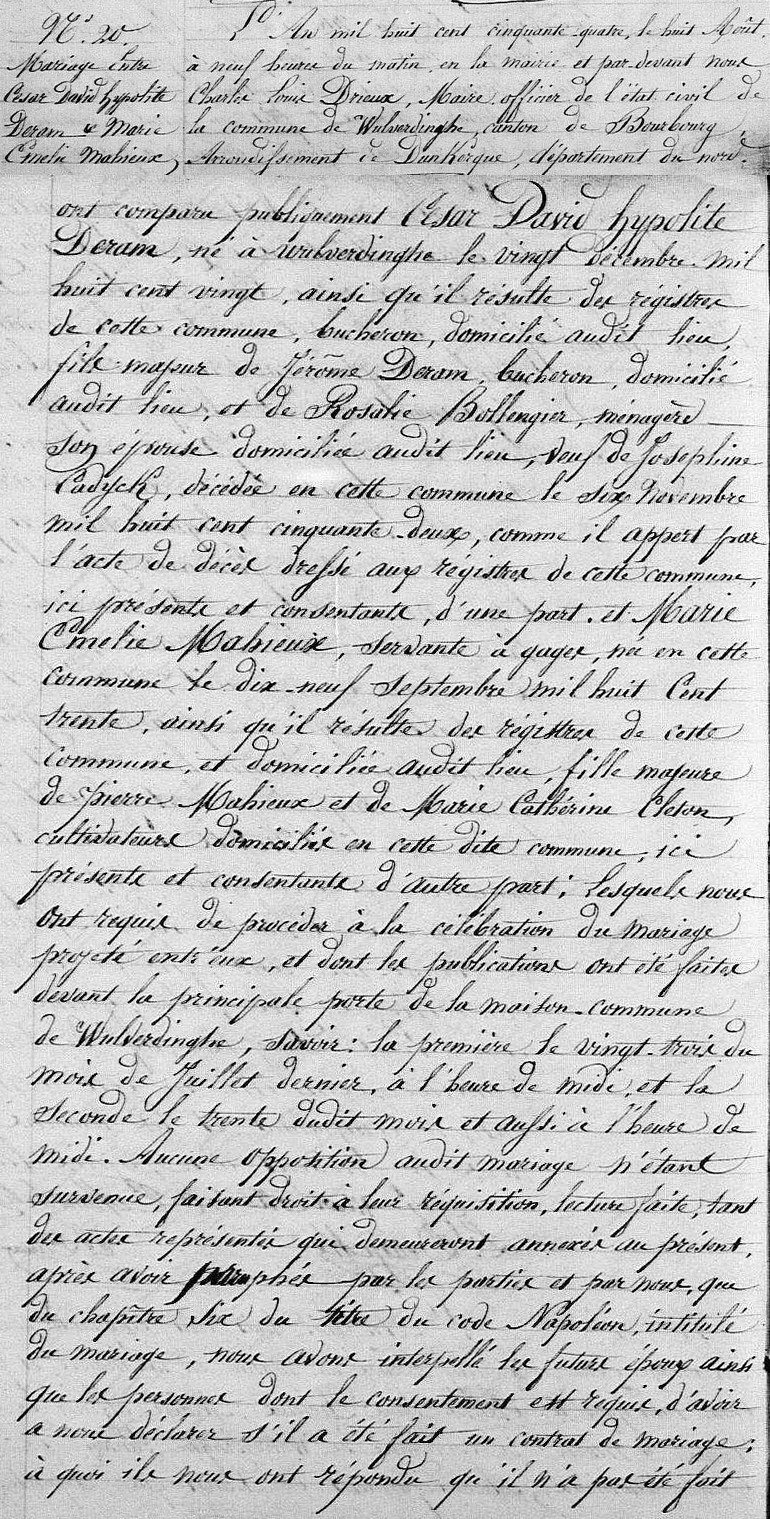 N°. 20.
Mariage entre
César David hypolite
Deram & Marie
Emelie Mahieux,
L'An mil huit cent cinquante-quatre, le huit Août,
à neuf heures du matin, en la mairie et par-devant nous
Charles Louis Drieux, Maire officier de l'état civil de
la commune de Wulverdinghe, canton de Bourbourg,
Arrondissement de Dunkerque, département du nord.
ont comparu publiquement César David hypolite
Deram, né à Wulverdinghe le vingt décembre mil
huit cent vingt, ainsi qu'il résulte des régistres
de cette commune, bucheron, domicilié audit lieu,
fils majeur de Jérôme Deram, bucheron, domicilié
audit lieu, et de Rosalie Bollengier, ménagère
son épouse domiciliée audit lieu, veuf de Josephine
Cadyck, décédée en cette commune le six Novembre
mil huit cent cinquante-deux, comme il appert par
l'acte de décès dressé aux régistres de cette commune,
ici présents et consentants, d'une part. et Marie
Emelie Mahieux, servante à gages, née en cette
commune le dix-neuf Septembre mil huit Cent
trente, ainsi qu'il résulte des régistres de cette
Commune, et domiciliée audit lieu, fille majeure
de pierre Mahieux et de Marie Cathérine Cleton,
cultivateurs domiciliés en cette dite commune, ici
présents et consentants d'autre part; lesquels nous
ont requis de procéder à la célébration du mariage
projeté entr'eux, et dont les publications ont été faites
devant la principale porte de la maison-commune
de Wulverdinghe, savoir: la première le vingt-trois du
mois de Juillet dernier, à l'heure de midi, et la
seconde le trente dudit mois et aussi à l'heure de
midi. Aucune opposition audit mariage n'étant
survenue, faisant droit à leur réquisition, lecture faite, tant
des actes représentés qui demeureront annexés au présent,
après avoir paraphés par les parties et par nous, que
du chapître six du titre du code Napoléon, intitulé
du mariage, nous avons interpellé les futurs époux ainsi
que les personnes dont le consentement est requis, d'avoir
a nous déclarer s'il a été fait un contrat de mariage;
à quoi ils nous ont répondu qu'il n'a pas été fait